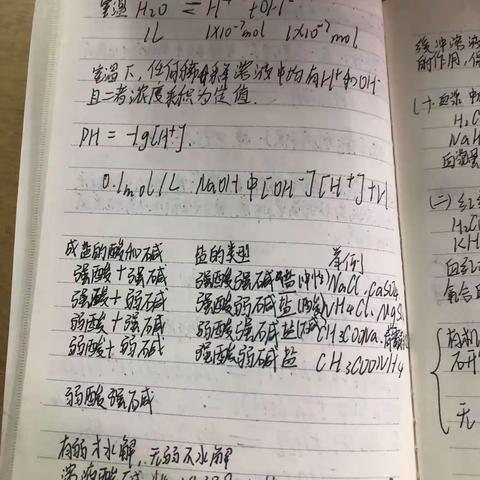 室温 H2O = H+ + OH-
1L 1×10-7mol 1×10-7mol
室温下,任何稀溶液中均有H+和OH-
且二者浓度乘积为定值.
PH = -lg[H+].
0.1mol/L NaOH中[OH-][H+]
成盐的酸和碱 盐的类型 举例
强酸+强碱 强酸强碱盐(中性) NaCl、CaSO4
强酸+弱碱 强酸弱碱盐(酸) NH4Cl、MgS
弱酸+强碱 弱酸强碱盐(碱) CH3COONa、
弱酸+弱碱 强酸弱碱盐 CH3COONH4
弱酸强碱
有弱才水解,无弱不水解
缓冲溶液
的作用,
(一)血浆中
H2C
NaH
血浆
(二)红
H2C
KH
血红
氧合
有机
无